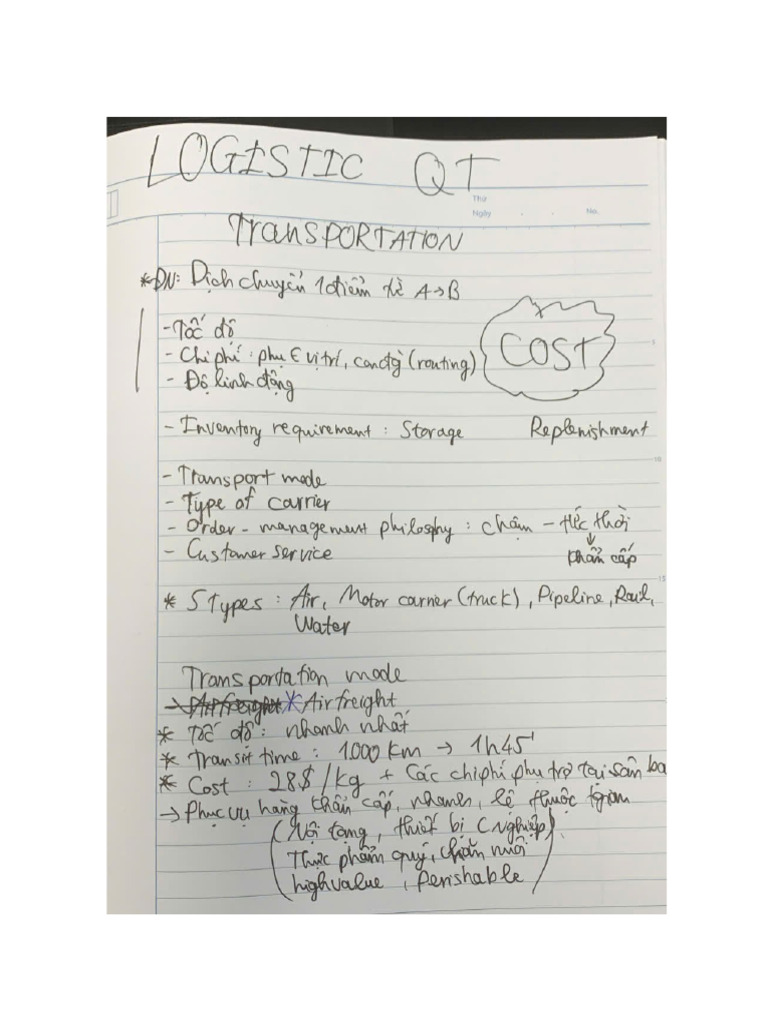 LOGISTIC QT
Thứ
Ngày . . No.
TransPORTATION
* ĐN: Dịch chuyển 1 điểm từ A → B
- Tốc độ
- Chi phí : phụ ∈ vị trí, cđtg (routing)
- Độ linh động
COST
- Inventory requirement : Storage Replenishment
- Transport mode
- Type of carrier
- Order - management philosophy : chậm - tức thời
↓
- Customer service khẩn cấp
* 5 Types : Air, Motor carrier (truck), Pipeline, Rail,
Water
Transportation mode
→ Airfreight * Airfreight
* Tốc độ : nhanh nhất
* Transit time : 1.000 km → 1h45'
* Cost : 28$/kg + Các chi phí phụ trợ tại sân ba
→ Phục vụ hàng khẩn cấp, nhanh, lệ thuộc tgian
(Nội tạng, thiết bị CNghiệp)
Thực phẩm quý, chăn nuôi
high value, perishable
5
10
15